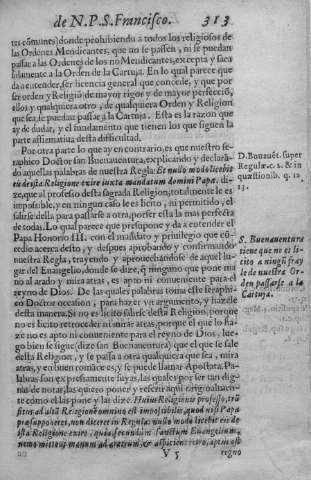 de N.P.S. Francisco. 313
tes comunes) donde prohibiendo a todos los religiosos de
las Ordenes Mendicantes, que no se passen, ni se puedan
passar a las Ordenes de los no Mendicantes, excepta y saca
solamente a la Orden de la Cartuja. En lo qual parece que
da a entender, ser licencia general que concede, y que por
ser orden y Religiō de mayor rigor y de mayor perfecciō,
ellos y qualquiera otro, de qualquiera Orden y Religion
que sea, se puedan passar a la Cartuja. Esta es la razon que
ay de dudar, y el fundamento que tienen los que siguen la
parte affirmatiua desta dificultad.
Por otra parte lo que ay en contrario, es que nuestro se-
raphico Doctor san Buenauentura, explicando y declarā-
do aquellas palabras de nuestra Regla: Et nullo modo licebit
eis de ista Religione exire iuxta mandatum domini Papæ. di-
ze, que al professo desta sagrada Religion, totalmente le es
impossible, y en ningun caso le es licito, ni permitido, el
salirse della para passarse a otra, por ser esta la mas perfecta
de todas. Lo qual parece que presupone y da a entender el
Papa Honorio III. en el mandato y priuilegio que cō-
cedio acerca desto, y despues aprobando y confirmando
nuestra Regla, trayendo y aprouechandose de aquel lu-
gar del Euangelio, donde se dize, q̄ ninguno que pone ma
no al arado y mira atras, es apto ni conueniente para el
reyno de Dios. De las quales palabras toma este seraphi-
co Doctor occasion, para hazer vn argumento, y hazele
desta manera. Si no es licito salirse desta Religion, porque
no es licito retroceder ni mirar atras, porque el que lo ha-
ze no es apto ni conueniente para el reyno de Dios, lue-
go bien se sigue (dize san Buenauentura) que el que se sale
desta Religion, y se passa a otra qualquiera que sea, mira
atras, y en buen romāce es, y se puede llamar Apostata. Pa-
labras son expressamente suyas, las quales por ser tan dig-
nas de notar, las quiero poner y referir aqui originalmen-
te como el las pone y las dize. Huius Religionis professo, trā
situs ad aliā Religionē omnino est impossibilis, quod nisi Papa
præsupponeret, non diceret in Regula: nullo modo licebit eis de
ista Religione exire, quia secundum sanctum Euangelium,
nemo mittens manum ad aratrum, & aspiciens retro, aptus est
V 5 regno
D. Bonauēt. super
Regulā c. 2. & in
quæstionib. q. 12
13.
S. Buenauentura
tiene que no es li-
cito a ningū fray
le de nuestra Or-
den passarse a la
Cartuja.